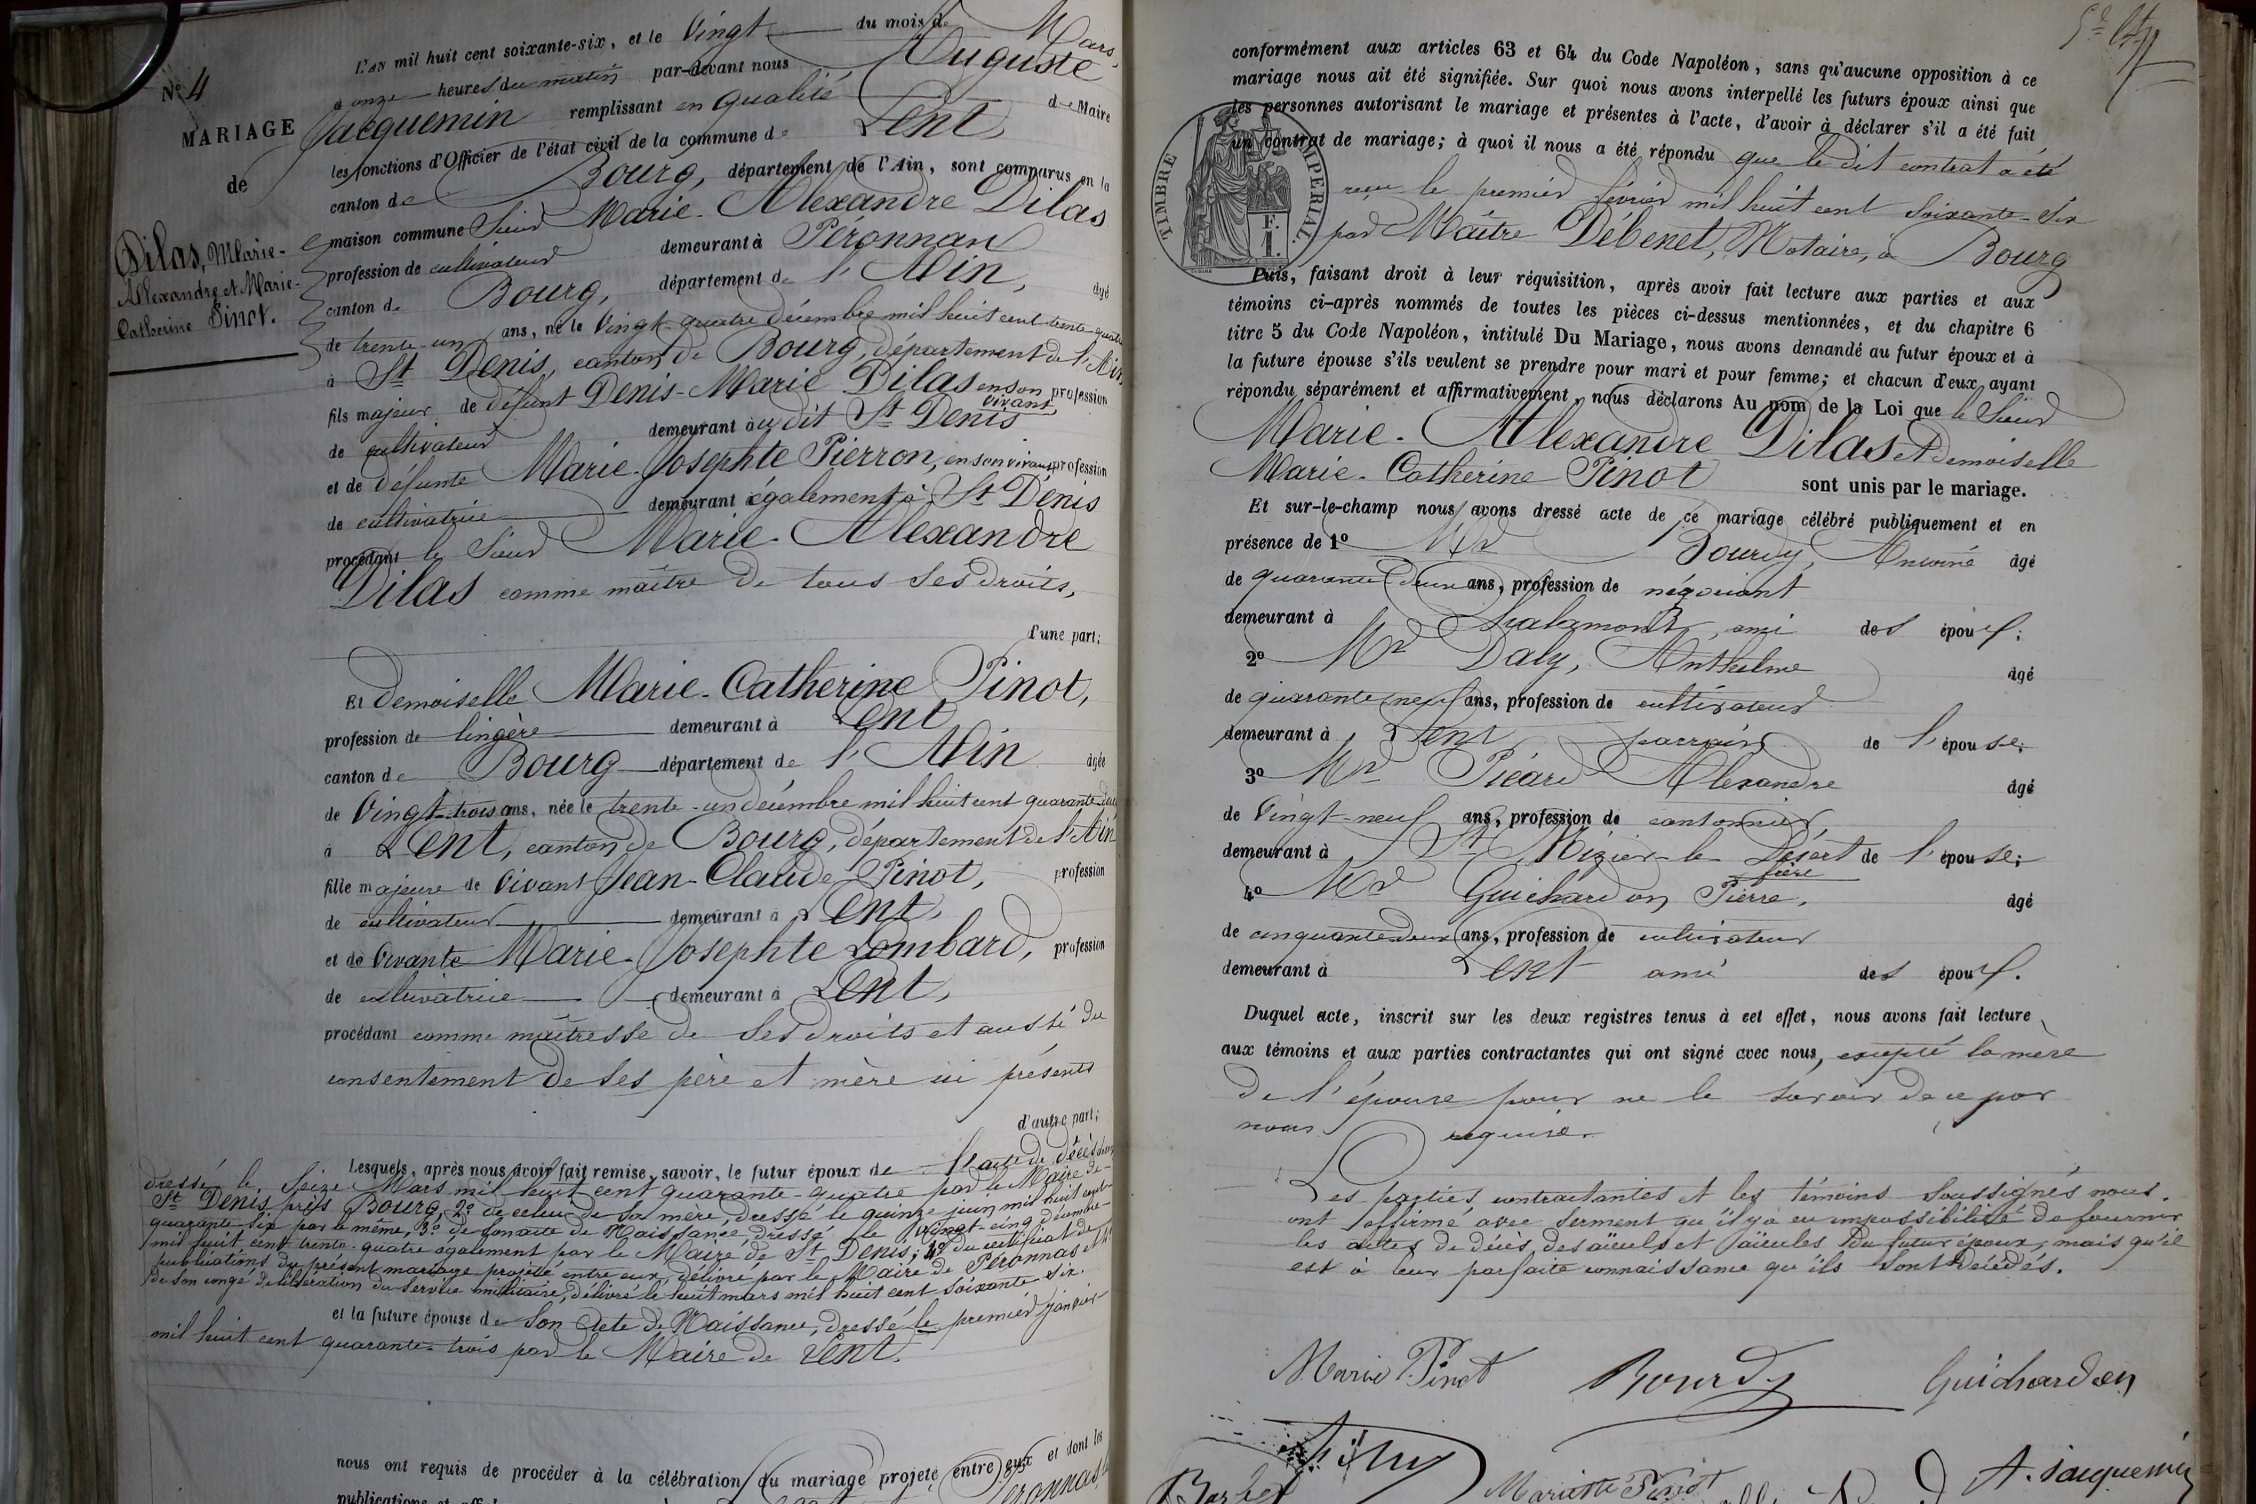 N° 4
MARIAGE
de
Dilas, Marie-
Alexandre et Marie-
Catherine Pinot.
L'an mil huit cent soixante-six, et le Vingt du mois de Mars,
à onze heures du matin par-devant nous Auguste
Jacquemin remplissant en qualité de Maire
les fonctions d'Officier de l'état civil de la commune de Lent,
canton de Bourg, département de l'Ain, sont comparus en la
maison commune Sieur Marie-Alexandre Dilas
profession de cultivateur demeurant à Péronnas
canton de Bourg, département de l'Ain, âgé
de trente-un ans, né le Vingt-quatre Décembre mil huit cent trente-quatre
à St Denis, canton de Bourg, département de l'Ain
fils majeur de défunt Denis-Marie Dilas en son vivant profession
de cultivateur demeurant au dit St Denis
et de défunte Marie-Josephte Pierron, en son vivant profession
de cultivatrice demeurant également à St Denis
procédant le Sieur Marie-Alexandre
Dilas comme maître de tous ses droits,
d'une part;
Et demoiselle Marie-Catherine Pinot,
profession de lingère demeurant à Lent
canton de Bourg département de l'Ain âgée
de Vingt-trois ans, née le trente-un décembre mil huit cent quarante-deux
à Lent, canton de Bourg, département de l'Ain
fille majeure de Vivant Jean-Claude Pinot, profession
de cultivateur demeurant à Lent,
et de Vivante Marie-Josephte Lombard, profession
de cultivatrice demeurant à Lent,
procédant comme maîtresse de ses droits et aussi du
consentement de ses père et mère ici présents
d'autre part;
Lesquels, après nous avoir fait remise, savoir, le futur époux de l'acte de décès
dressé le Seize Mars mil huit cent quarante-quatre par le Maire de
St Denis près Bourg, 2° de celui de sa mère, dressé le quinze juin mil huit cent
quarante-six par le même, 3° de son acte de Naissance, dressé le Vingt-cinq décembre
mil huit cent trente-quatre également par le Maire de St Denis; 4° du certificat de
publications du présent mariage projeté entre eux, délivré par le Maire de Péronnas et
de son congé de libération du service militaire, délivré le huit mars mil huit cent soixante-six.
et la future épouse de Son Acte de Naissance, dressé le premier janvier
mil huit cent quarante-trois par le Maire de Lent.
nous ont requis de procéder à la célébration du mariage projeté entre eux et dont les
publications
conformément aux articles 63 et 64 du Code Napoléon, sans qu'aucune opposition à ce
mariage nous ait été signifiée. Sur quoi nous avons interpellé les futurs époux ainsi que
les personnes autorisant le mariage et présentes à l'acte, d'avoir à déclarer s'il a été fait
un contrat de mariage; à quoi il nous a été répondu que le dit contrat a été
reçu le premier février mil huit cent soixante-six
par Maître Débenet, Notaire, à Bourg
TIMBRE IMPERIAL
F.
1.
Puis, faisant droit à leur réquisition, après avoir fait lecture aux parties et aux
témoins ci-après nommés de toutes les pièces ci-dessus mentionnées, et du chapitre 6
titre 5 du Code Napoléon, intitulé Du Mariage, nous avons demandé au futur époux et à
la future épouse s'ils veulent se prendre pour mari et pour femme; et chacun d'eux ayant
répondu séparément et affirmativement, nous déclarons Au nom de la Loi que le Sieur
Marie-Alexandre Dilas et demoiselle
Marie-Catherine Pinot sont unis par le mariage.
Et sur-le-champ nous avons dressé acte de ce mariage célébré publiquement et en
présence de 1° Mr Bourdy, Antoine âgé
de quarante-deux ans, profession de négociant
demeurant à Chalamont, ami des époux;
2° Mr Daly, Anthelme âgé
de quarante-neuf ans, profession de cultivateur
demeurant à Lent parrain de l'épouse;
3° Mr Picard Alexandre âgé
de Vingt-neuf ans, profession de cantonnier
demeurant à St Nizier-le-Désert de l'épouse;
4° Mr Guichardon Pierre, âgé
de cinquante-deux ans, profession de cultivateur
demeurant à Lent ami des époux.
Duquel acte, inscrit sur les deux registres tenus à cet effet, nous avons fait lecture
aux témoins et aux parties contractantes qui ont signé avec nous, excepté la mère
de l'épouse pour ne le savoir de ce par
nous requise.
Les parties contractantes et les témoins soussignés nous
ont affirmé avec serment qu'il y a eu impossibilité de fournir
les actes de décès des aïeuls et aïeules du futur époux, mais qu'il
est à leur parfaite connaissance qu'ils sont décédés.
Marie Pinot Bourdy Guichardon
Mariette Pinot A. Jacquemin